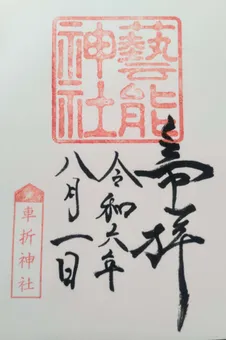 藝能神社
斎拝
令和六年
八月一日
車折神社